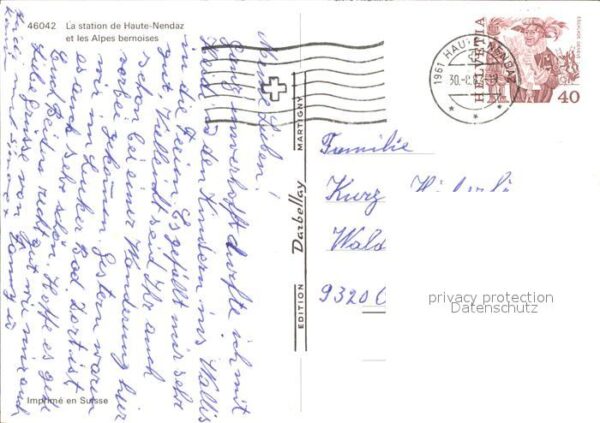 46042 La station de Haute-Nendaz
et les Alpes bernoises
Meine Lieben!
Ganz unverhofft durfte ich mit
den Kindern ins Wallis
in die Ferien. Es gefällt mir sehr
gut. Vielleicht seid Ihr auch
schon bei einer Wanderung hier
vorbei gekommen. Gestern waren
wir im Leuker Bad. Dort ist
es auch sehr schön. Hoffe es geht
Euch Beiden recht gut wie mir auch
Liebe Grüsse von
Imprimé en Suisse
EDITION Darbellay MARTIGNY
1961 HAUTE-NENDAZ
HELVETIA
40
Familie
Kurz
Wald
9320
privacy protection
Datenschutz